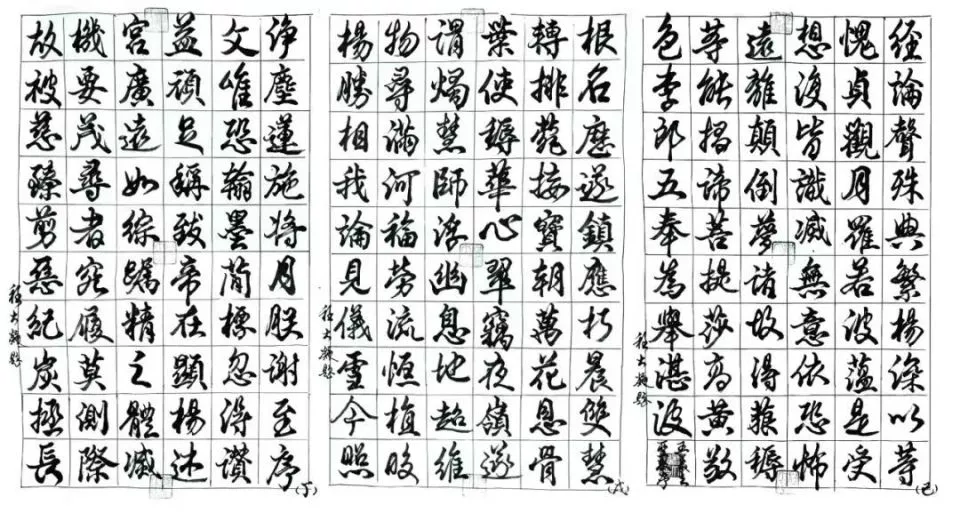 塵蓮施將月朕謝至序
文唯恐翰墨簡標忽得讚
益頑足稱致帝在顯楊述
宮廣遠如綜囑精之體滅
機要茂尋者究履莫測際
故被慈臻剪惡紀炭拯長
(丁)
根名遂鎮應朽晨雙慧
轉排接寶朝萬花恩骨
業使耨華心翠竊夜嶺遂
謂燭慧師浮幽息地超維
物尋滿河福勞流恒植晈
楊勝相我論見儀雪今照
(戊)
经論聲殊典繁楊深以等
愧貞觀月羅若波蕴是受
想復皆識滅無意依恐怖
遠離顛倒夢諸故得藐耨
等能揭諦菩提莎高黄敬
色李郎五奉為舉湛波
(己)